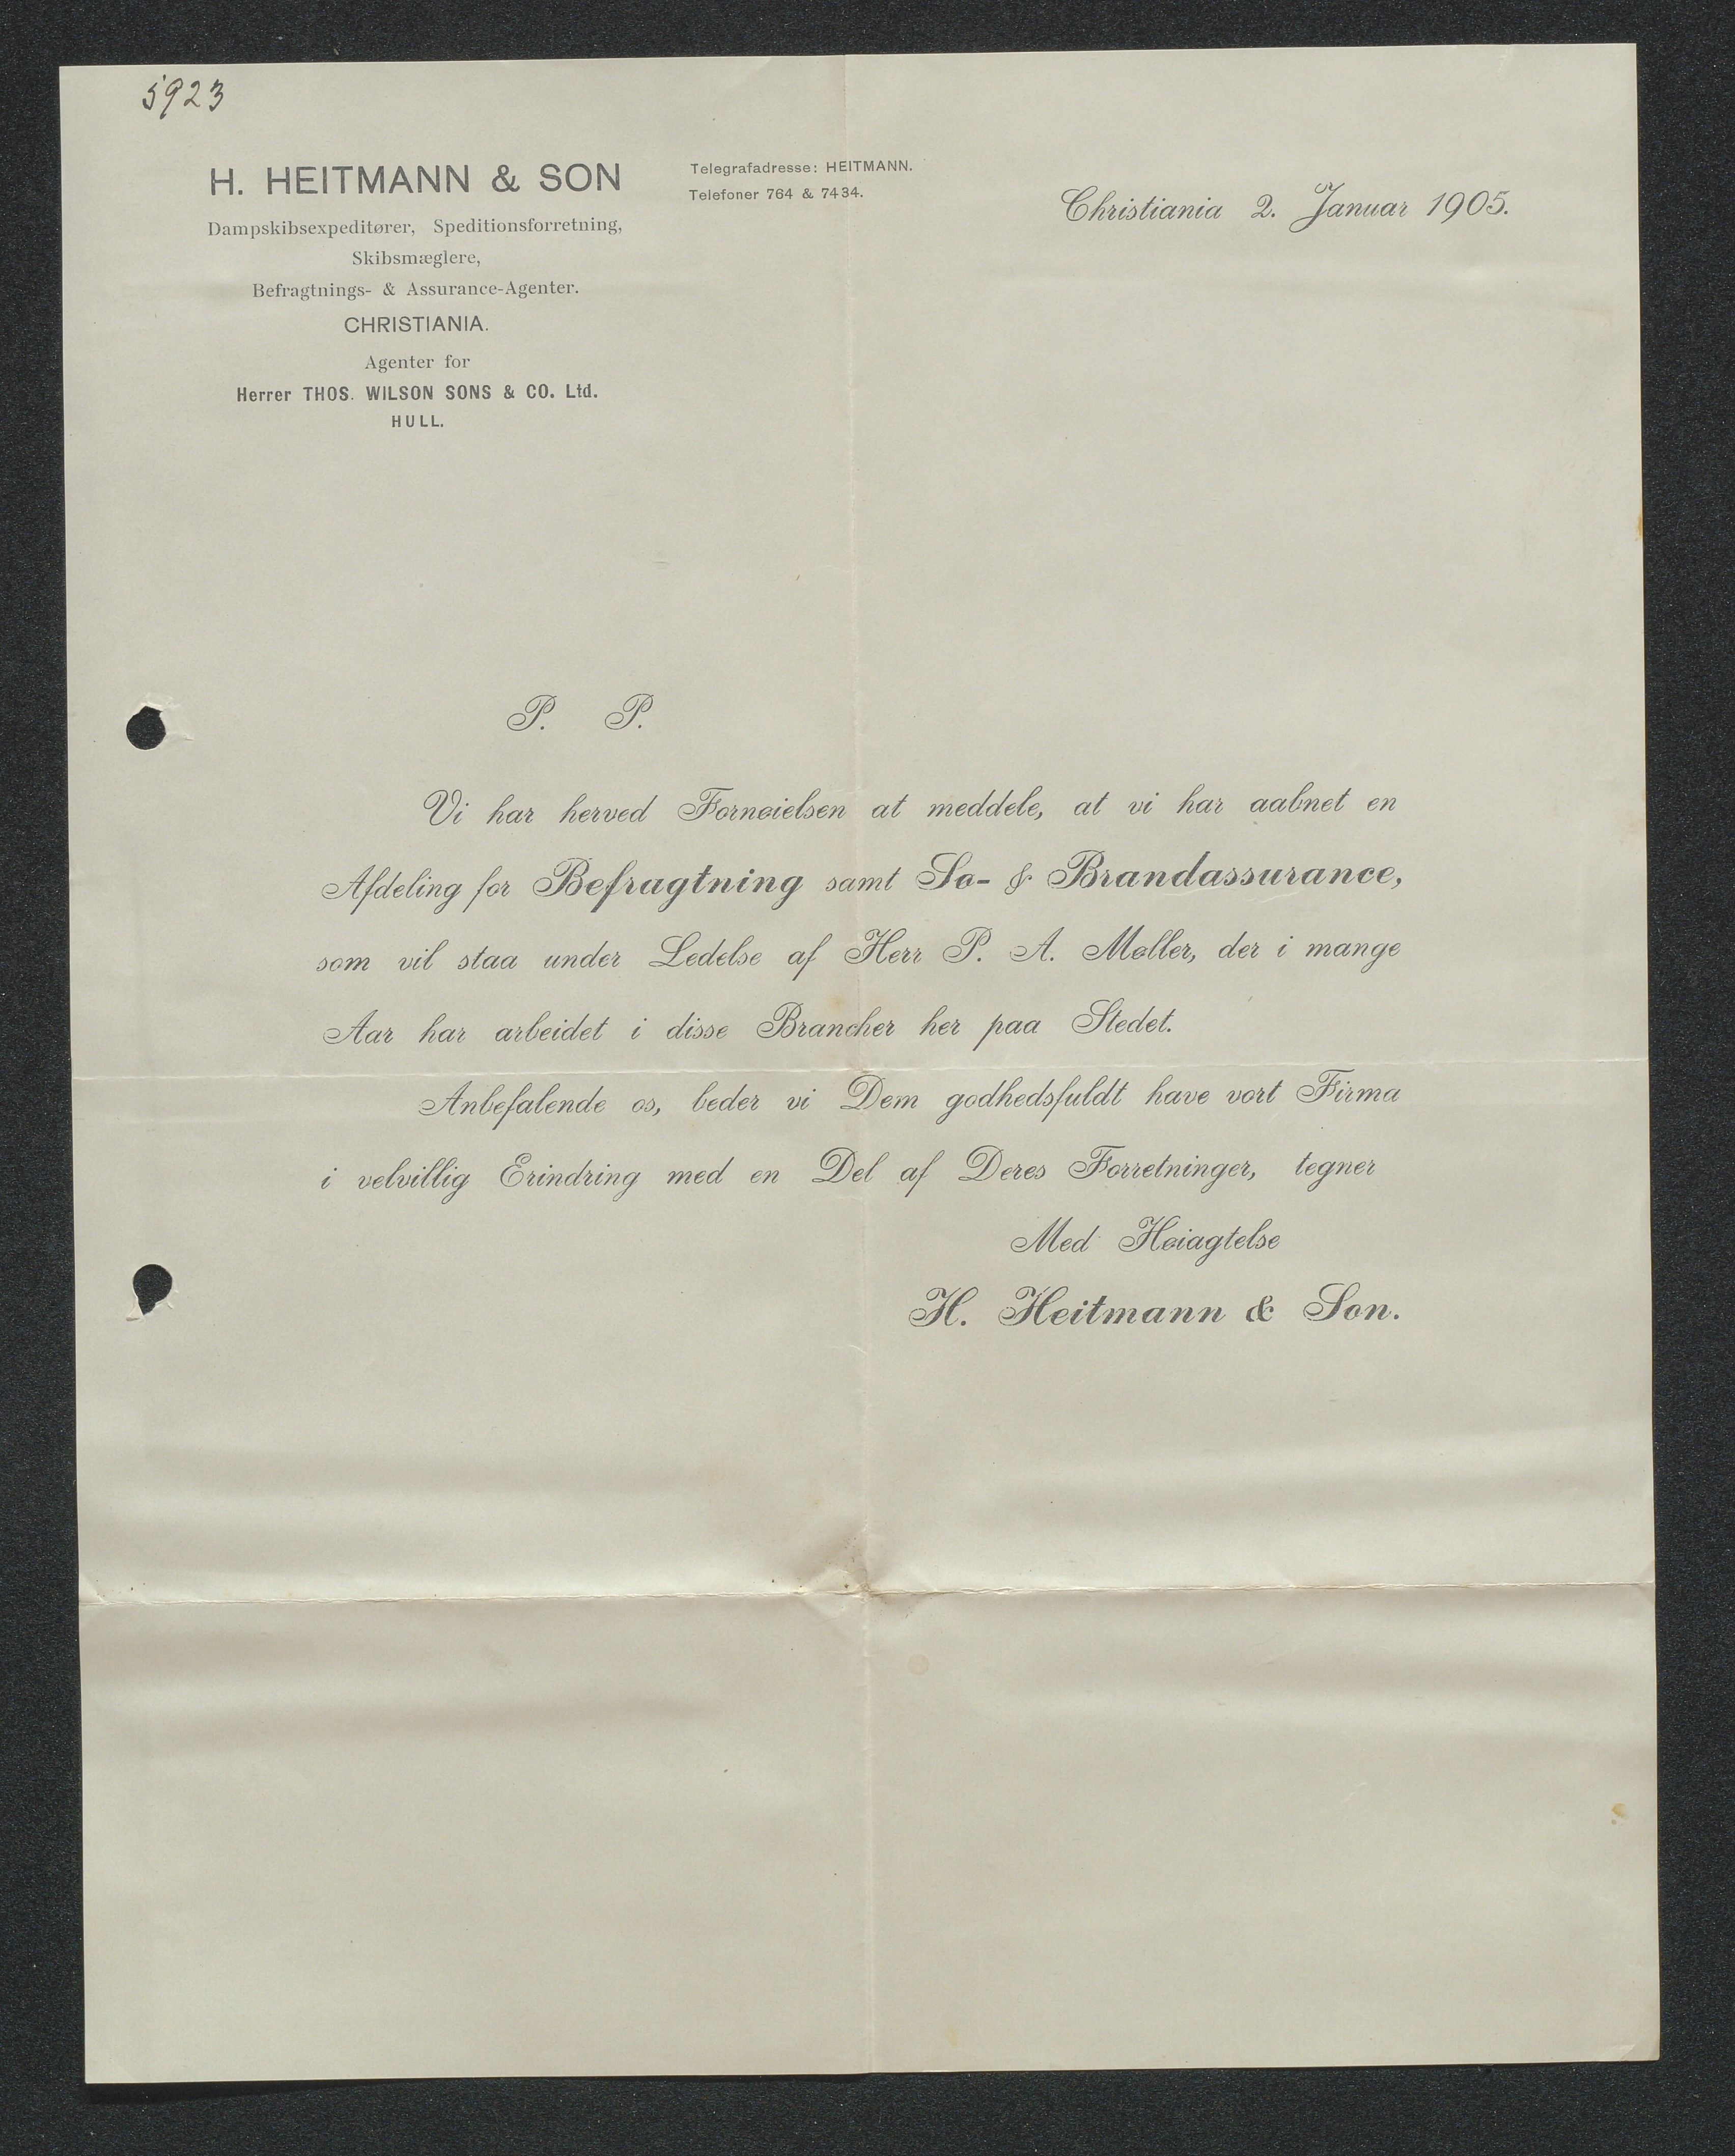 5923
H. HEITMANN & SON
Dampskibsexpeditører, Speditionsforretning,
Skibsmæglere,
Befragtnings- & Assurance-Agenter.
CHRISTIANIA.
Agenter for
Herrer THOS. WILSON SONS & CO. Ltd.
HULL.
Telegrafadresse: HEITMANN.
Telefoner 764 & 7434.
Christiania 2. Januar 1905.
P. P.
Vi har herved Fornøielsen at meddele, at vi har aabnet en
Afdeling for Befragtning samt Sø- & Brandassurance,
som vil staa under Ledelse af Herr P. A. Møller, der i mange
Aar har arbeidet i disse Brancher her paa Stedet.
Anbefalende os, beder vi Dem godhedsfuldt have vort Firma
i velvillig Erindring med en Del af Deres Forretninger, tegner
Med Høiagtelse
H. Heitmann & Søn.